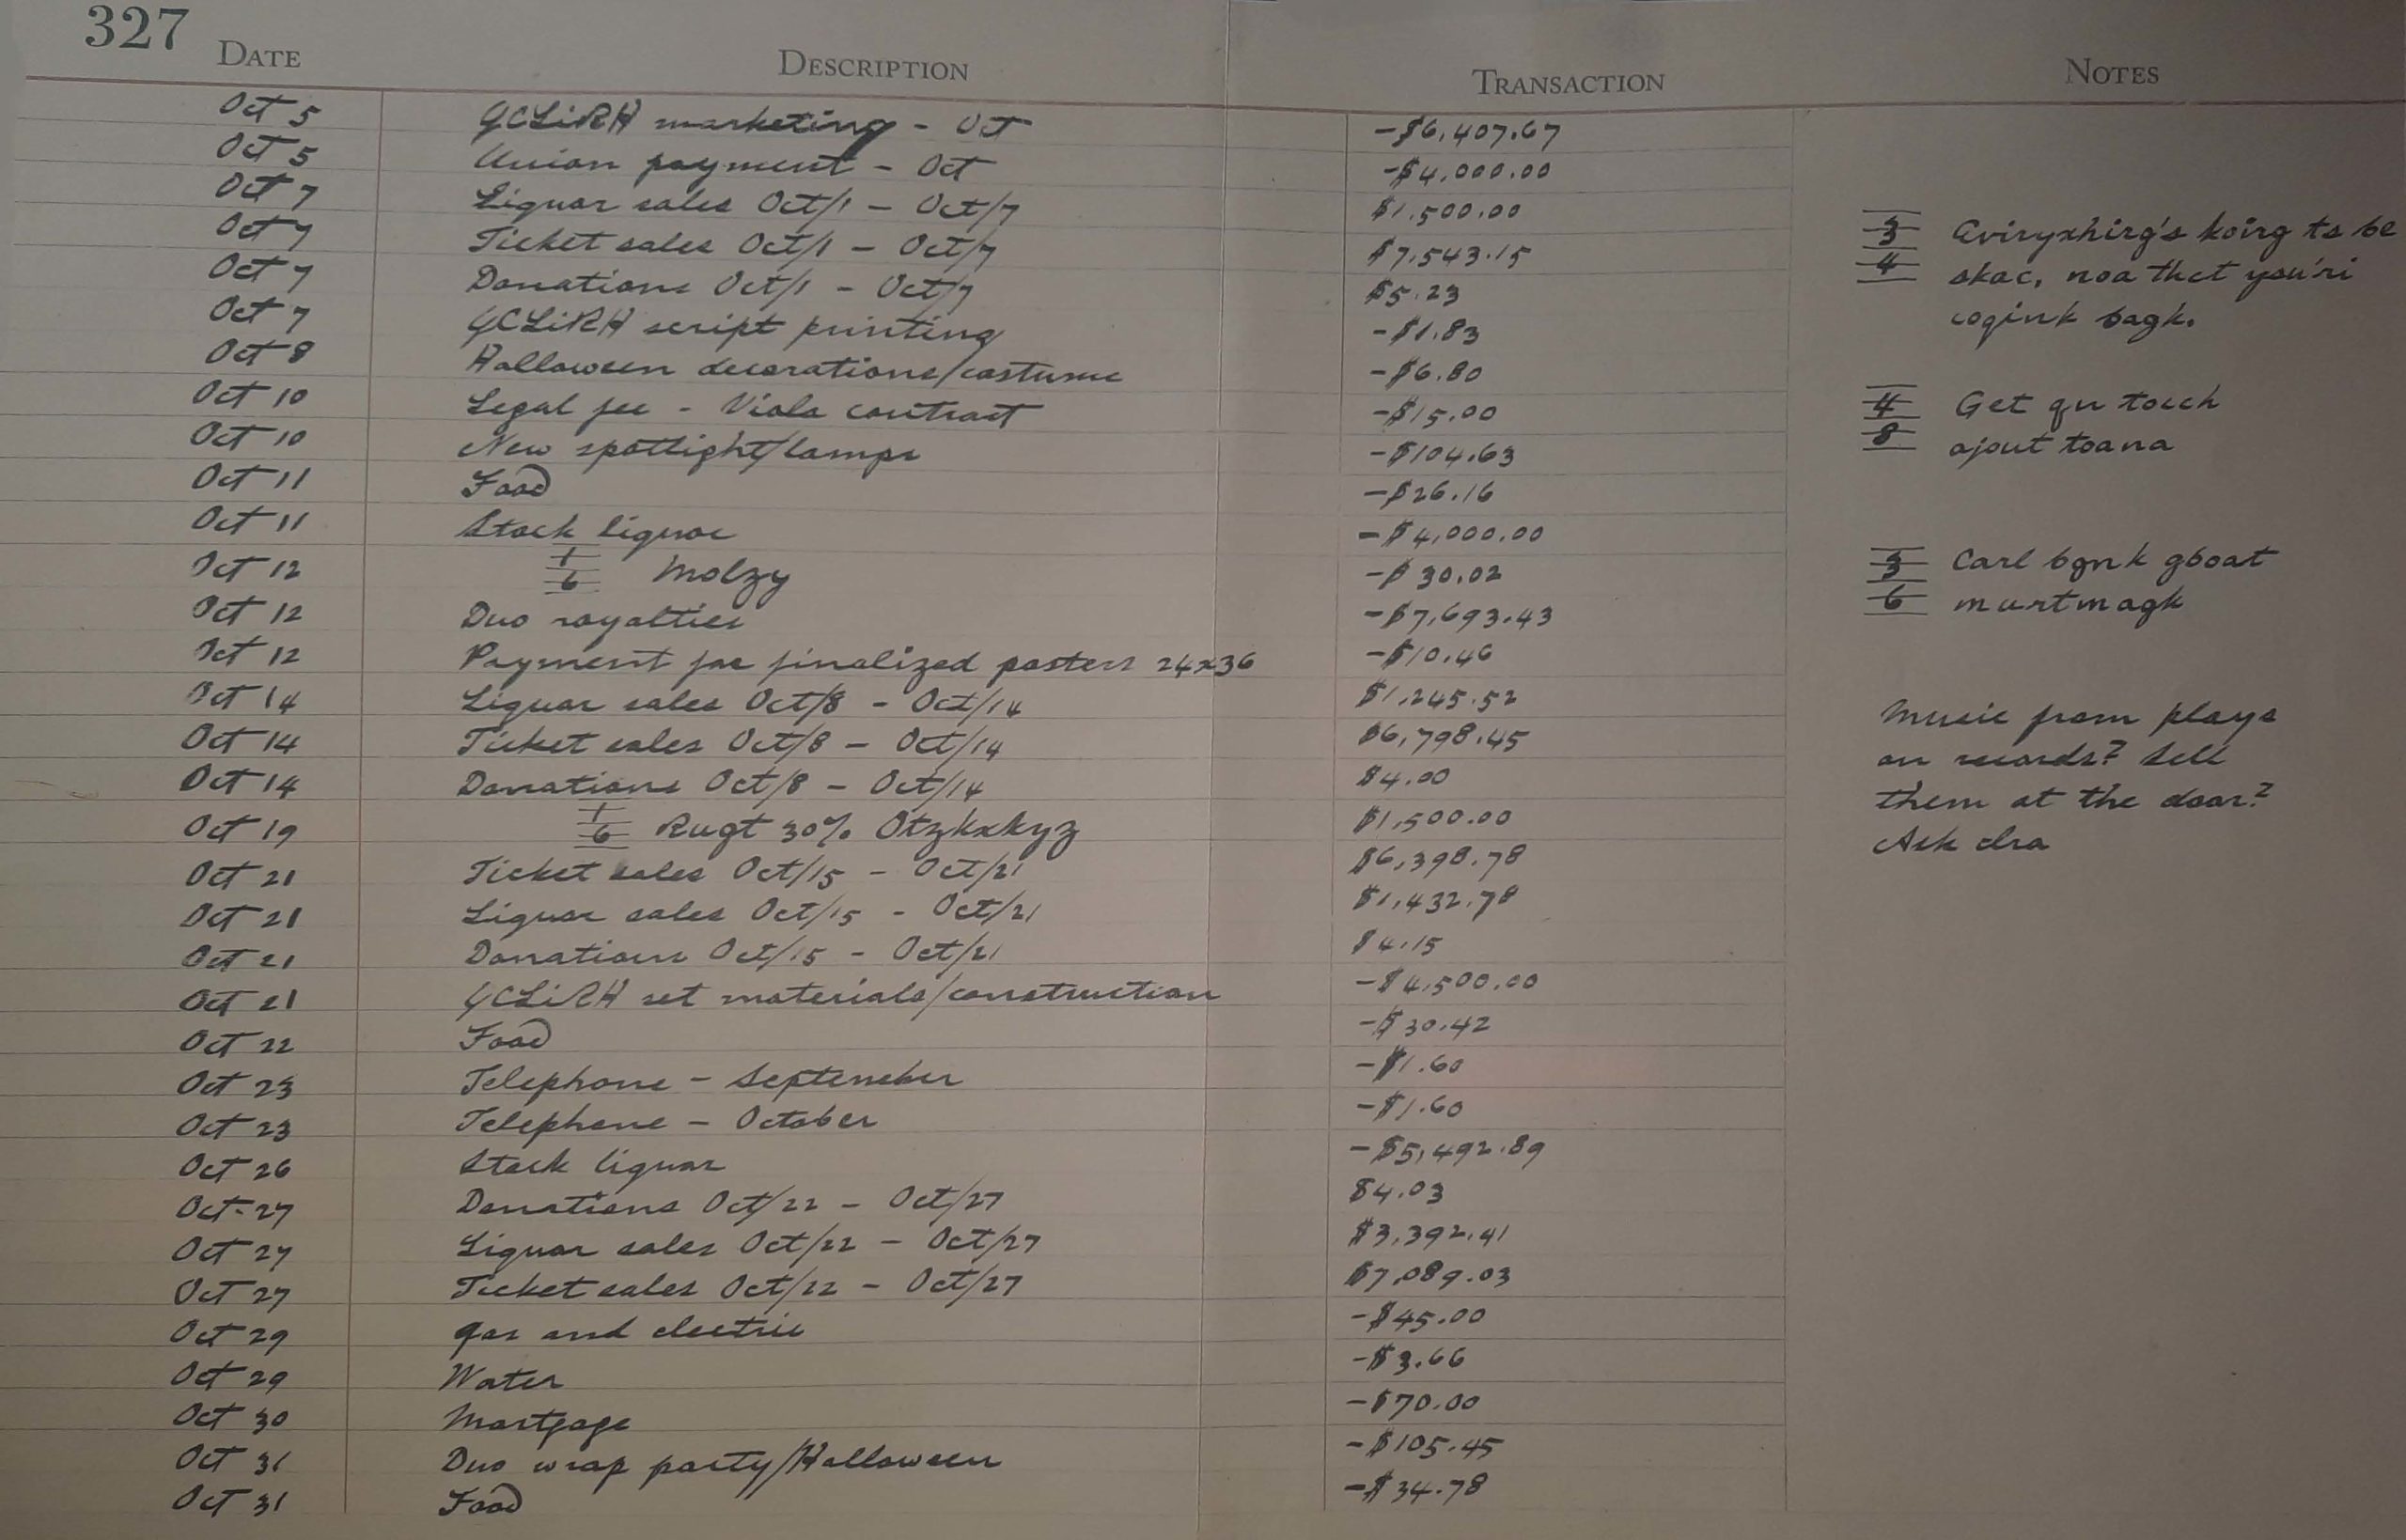 327
DATE DESCRIPTION TRANSACTION NOTES
Oct 5 GCLiRH marketing - Oct -$6,407.67
Oct 5 Union payment - Oct -$4,000.00
Oct 7 Liquor sales Oct/1 - Oct/7 $1,500.00
Oct 7 Ticket sales Oct/1 - Oct/7 $7,543.15
Oct 7 Donations Oct/1 - Oct/7 $5.23
Oct 7 GCLiRH script printing -$1.83
Oct 8 Halloween decorations/costume -$6.80
Oct 10 Legal fee - Viola contract -$15.00
Oct 10 New spotlight/lamps -$104.63
Oct 11 Food -$26.16
Oct 11 Stock liquor -$4,000.00
Oct 12 1/6 Molzy -$30.02
Oct 12 Duo royalties -$7,693.43
Oct 12 Payment for finalized posters 24x36 -$10.46
Oct 14 Liquor sales Oct/8 - Oct/14 $1,245.52
Oct 14 Ticket sales Oct/8 - Oct/14 $6,798.45
Oct 14 Donations Oct/8 - Oct/14 $4.00
Oct 19 1/6 Rugt 30% Otzkxkyz $1,500.00
Oct 21 Ticket sales Oct/15 - Oct/21 $6,398.78
Oct 21 Liquor sales Oct/15 - Oct/21 $1,432.78
Oct 21 Donations Oct/15 - Oct/21 $4.15
Oct 21 GCLiRH set materials/construction -$4,500.00
Oct 22 Food -$30.42
Oct 23 Telephone - September -$1.60
Oct 23 Telephone - October -$1.60
Oct 26 Stock liquor -$5,492.89
Oct 27 Donations Oct/22 - Oct/27 $4.03
Oct 27 Liquor sales Oct/22 - Oct/27 $3,392.41
Oct 27 Ticket sales Oct/22 - Oct/27 $7,089.03
Oct 29 Gas and electric -$45.00
Oct 29 Water -$3.66
Oct 30 Mortgage -$70.00
Oct 31 Duo wrap party/Halloween -$105.45
Oct 31 Food -$34.78
3 Eviryxhirg's koirg ts be
4 skac, noa thct you'ri
cogink bagk.
4 Get qn tocch
8 ajout toana
3 Carl bgnk gboat
6 murtmagk
Music from plays
on records? Sell
them at the door?
Ask dra